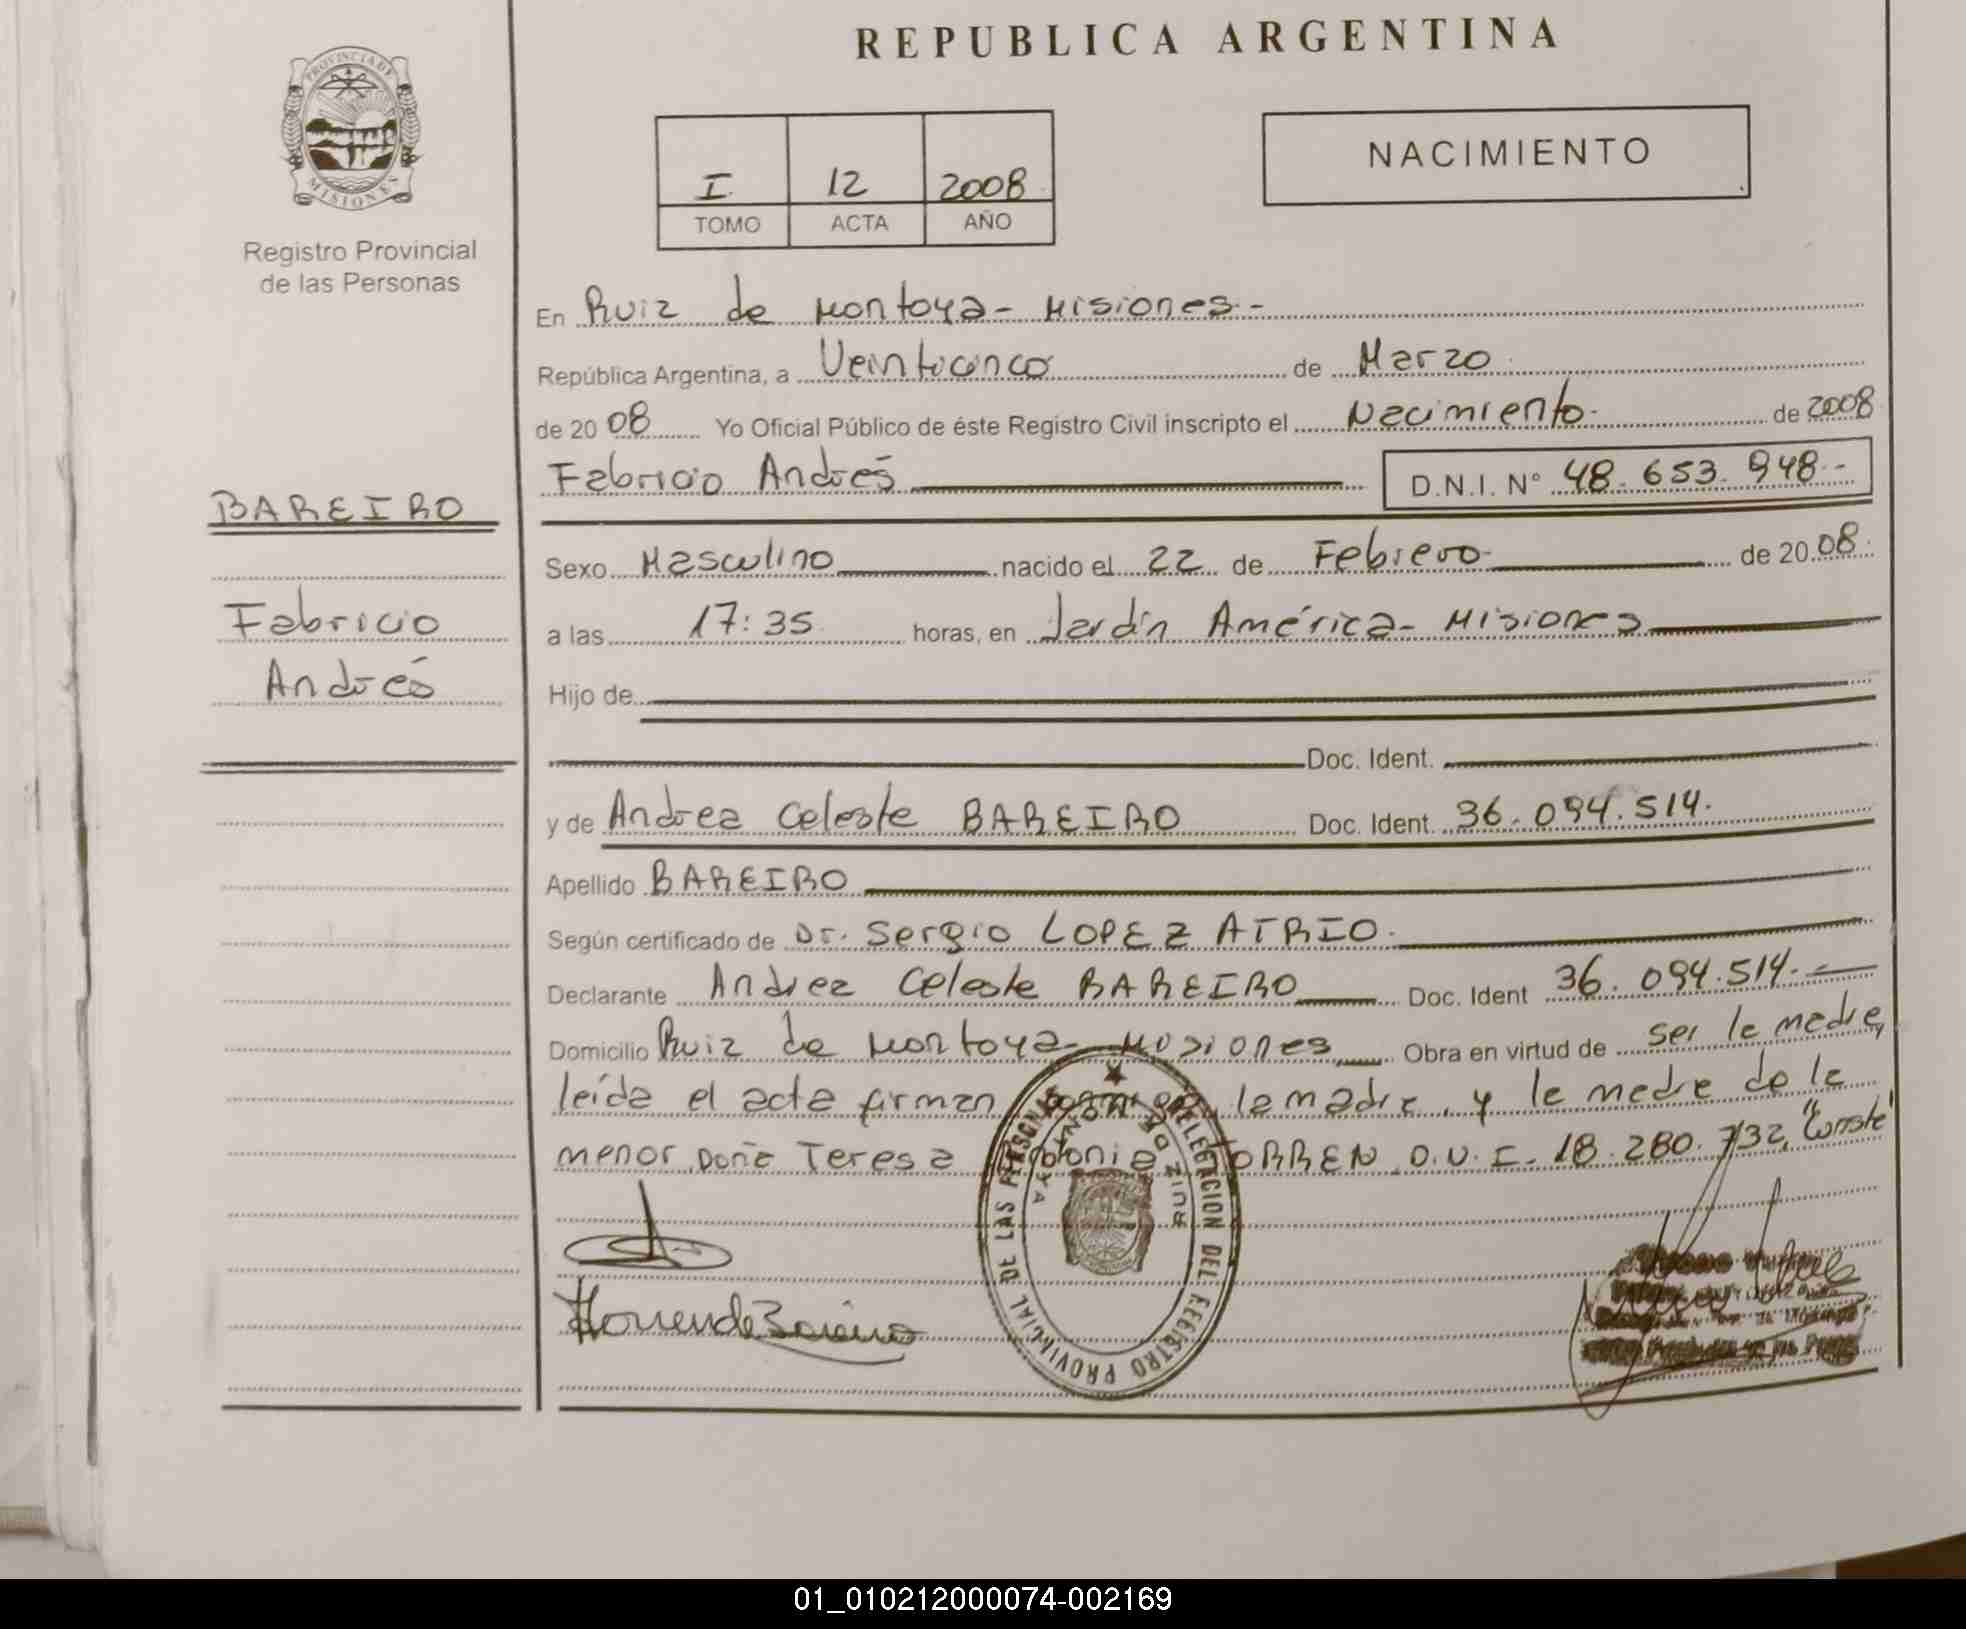 REPUBLICA ARGENTINA
PROVINCIA DE MISIONES
Registro Provincial
de las Personas
I 12 2008
TOMO ACTA AÑO
NACIMIENTO
En Ruiz de Montoya - Misiones -
República Argentina, a Veinticinco de Marzo
de 2008 Yo Oficial Público de éste Registro Civil inscripto el Nacimiento de 2008
Fabricio Andrés D.N.I. N° 48.653.948.-
BAREIRO
Fabricio
Andrés
Sexo Masculino nacido el 22 de Febrero de 2008
a las 17:35 horas, en Jardín América - Misiones
Hijo de
Doc. Ident.
y de Andrea Celeste BAREIRO Doc. Ident. 36.094.514.
Apellido BAREIRO
Según certificado de Dr. Sergio LOPEZ ATRIO.
Declarante Andrea Celeste BAREIRO Doc. Ident 36.094.514.-
Domicilio Ruiz de Montoya - Misiones Obra en virtud de ser la madre,
leída el acta firman conmigo, la madre, y la madre de la
menor Doña Teresa TORREN D.N.I. 18.280.732, "Conste"
DELEGACION DEL REGISTRO PROVINCIAL DE LAS PERSONAS
RUIZ DE MONTOYA
01_010212000074-002169